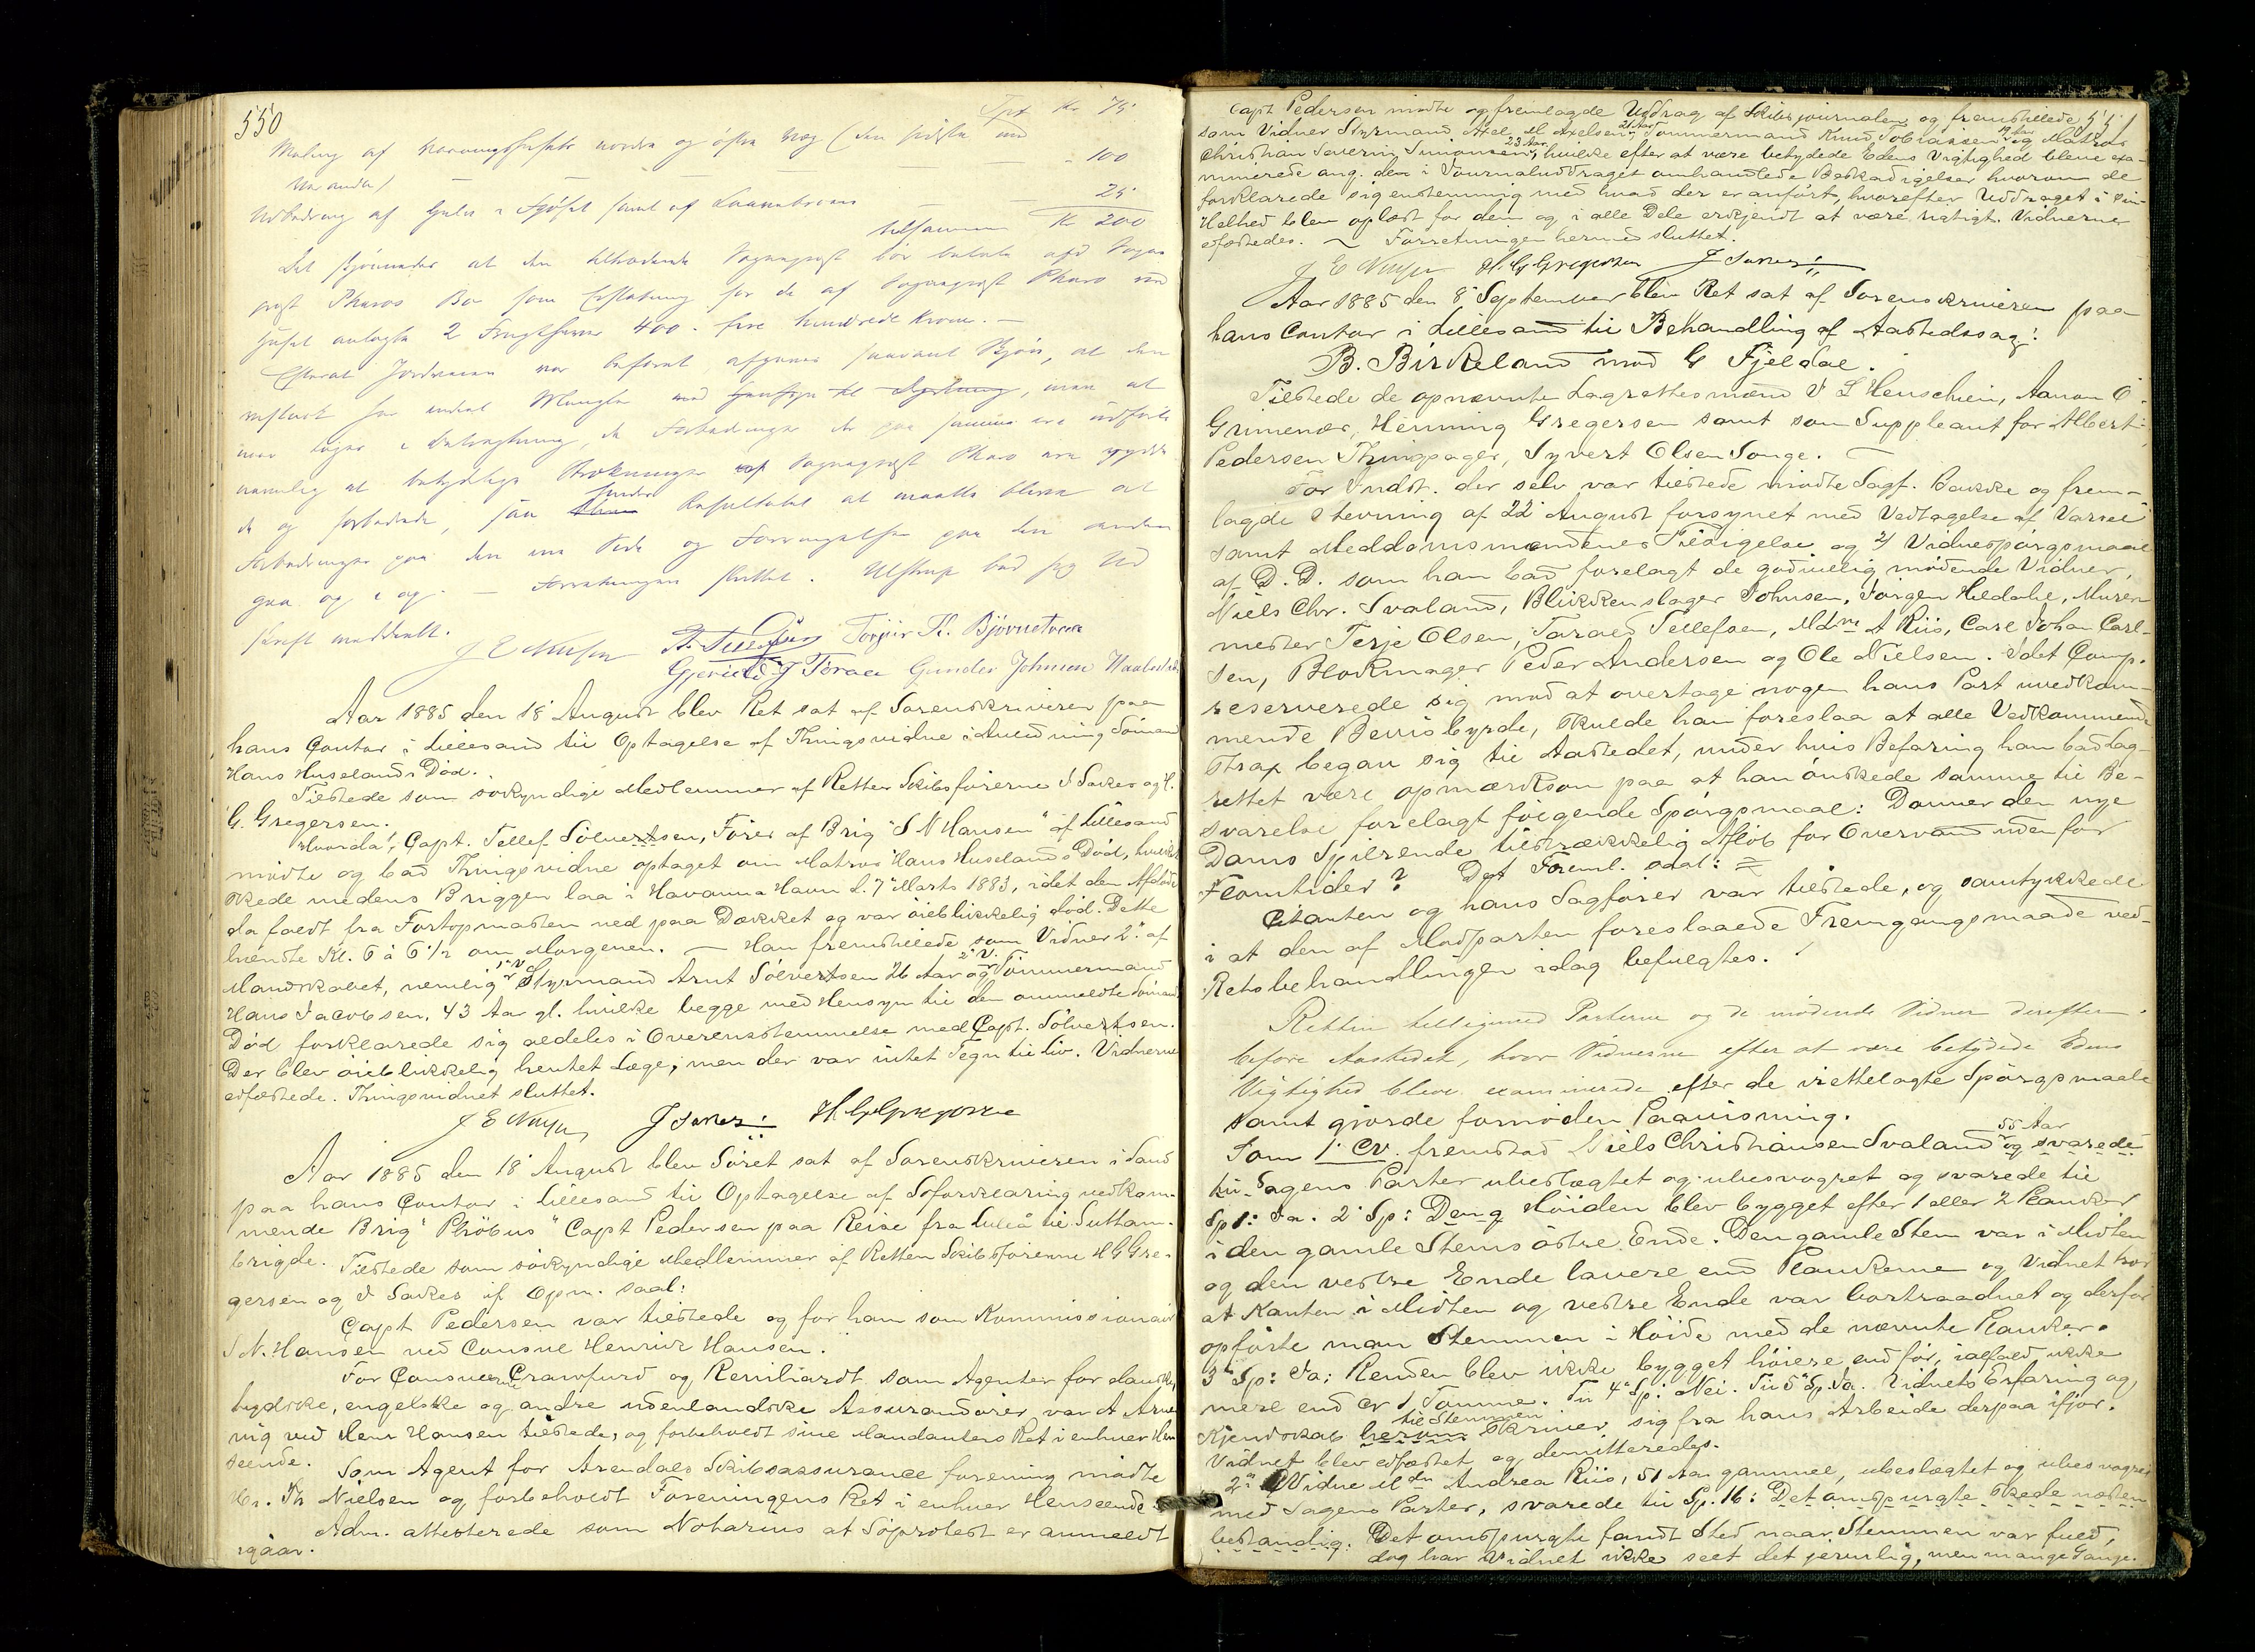 550
Tpt Kr 75
Maling af Vaaningshusets nordre og østre Væg (den sidste med
Veranda) — — — " 100
Udbedring af Gulv i Fjøset samt af Laavebroen — — 25
tilsammen Kr 200
Det skjønnedes at den tiltrædende Sogneprest bør betale afd Sogne
prest Pharos Bo som Erstatning for de af Sogneprest Pharo ved
huset anlagte 2 400. fire hundrede Kroner. —
Efterat Forretningen var afgaves saavant Skjøn, at den
for endel Mangler med Hensyn til, men at
man tager i Betragtning, at Forbedringer der paa samme ere udførte
navnlig at betydelige Strækninger af Sogneprest Pharo ere ryddede
de og forbedrede, saa finder Resultatet at maatte blive at
Forbedringer paa den ene Side og Forringelser paa den anden
gaa op i op. — Forretningen sluttet. Ulstrup bad sig Ud
skrift meddeelt.
J E Torjus K. Bjørnetveit
Gjeruld J Gunder Johnsen
Aar 1885 den 18' August blev Ret sat af Sorenskriveren paa
hans Contor i Lillesand til Optagelse af Thingsvidne i Anledning Sømand
Hans Huselands Død.
Tilstede som søkyndige Medlemmer af Retten Skibsførerne J Sakes og H.
G. Gregersen.
Hvorda', Capt. Tellef Sølvertsen, Fører af Brig "S N Hansen" af Lillesand
mødte og bad Thingsvidne optaget om Matros Hans Huselands Død, hvilket
skede medens Briggen laa i Havanna Havn d. 7' Marts 1883, idet den Afdøde
da faldt fra Fortopmasten ned paa Dækket og var øieblikkelig død. Dette
hændte Kl. 6 à 6 1/2 om Morgenen. — Han fremstillede som Vidner 2de af
Mandskabet, nemlig 1' V. Styrmand Arnt Sølvertsen 26 Aar og 2' V. Tømmermand
Hans Jacobsen, 43 Aar gl. hvilke begge med Hensyn til den anmeldte Sømands
Død forklarede sig aldeles i Overensstemmelse med Capt. Sølvertsen.
Der blev øieblikkelig hentet Læge, men der var intet Tegn til Liv. Vidnerne
edfæstede. Thingsvidnet sluttet.
J E J Sakes: H G Gregersen
Aar 1885 den 18' August blev Søret sat af Sorenskriveren i Sand
paa hans Contor i Lillesand til Optagelse af Søforklaring vedkom-
mende Brig "Phøbus" Capt Pedersen paa Reise fra Luleå til Suttan-
brigde. Tilstede som søkyndige Medlemmer af Retten Skibsførerne H G Gre-
gersen og J Sakes if. Opn. saal:
Capt Pedersen var tilstede og for ham som Kommissionair
S N. Hansen ved Consul Henrik Hansen.
For Consulerne Crawfurd og Reinhardt som Agenter for danske,
tydske, engelske og andre udenlandske Assurandører var A Arne
nig ved Henr Hansen tilstede, og forbeholdt sine Mandanters Ret i enhver Hen
seende.
Som Agent for Arendals Skibsassurance forening mødte
Hr. Th Nielsen og forbeholdt Foreningens Ret i enhver Henseende.
Adm. attesterede som Notarius at Søprotest er anmeldt
igaar.
551
Capt Pedersen mødte og fremlagde Uddrag af Skibsjournalen og fremstillede
som Vidner Styrmand Axel M Axelsen, 21 Aar, Tømmermand Knud Tobiassen og Matros
Christian Severin Simonsen, 23 Aar, hvilke efter at være betydede Edens Vigtighed bleve exa-
minerede ang. den i Journaluddraget omhandlede Beskadigelser hvorom de
forklarede sig enstemmig med hvad der er anført, hvorefter Uddraget i sin
Helhed blev oplæst for dem og i alle Dele erkjendt at være rigtigt. Vidnerne
edfæstedes. ~ Forretningen hermed sluttet.
J E H. G Gregersen J Sakes:
Aar 1885 den 8' September blev Ret sat af Sorenskriveren paa
hans Contor i Lillesand til Behandling af Aastedssag:
B. Birkeland mod G Fjeldal.
Tilstede de opnævnte Lagrettesmænd V S Henschien, Aanon O
Grimenæs, Henning Gregersen samt som Suppleant for Albert
Pedersen Thingsager, Syvert Olsen Songe. —
For Indst. der selv var tilstede mødte Sagf. Bakke og frem-
lagde Stevning af 22' August forsynet med Vedtagelse af Varsel
samt Meddomsmændenes Tilsigelse og 2) Vidnespørgsmaal
af D. D. som han bad forelagt de godvillig mødende Vidner,
Niels Chr. Svaland, Blikkenslager Johnsen, Jørgen Heldahl, Murer-
mester Terje Olsen, Tarald Tellefsen, Mdme A Riis, Carl Johan Carl-
sen, Blokmager Peder Andersen og Ole Nielsen. Idet Comp.
reserverede sig mod at overtage nogen hans Part uvedkom-
mende Bevisbyrde, skulde han foreslaa at alle Vedkommende
strax begav sig til Aastedet, under hvis Befaring han bad Lag-
rettet være opmærksom paa at han ønskede samme til Be-
svarelse forelagt følgende Spørgsmaal: Danner den nye
Dams Spilrende tilstrækkelig Afløb for Overvand uden for
Flomtider? Det Freml. saal: =
Citanten og hans Sagfører var tilstede, og samtykkede
i at den af Modparten foreslaaede Fremgangsmaade ved-
Retsbehandlingen idag befulgtes.
Retten tilligemed Parterne og de mødende Vidner derefter
before Aastedet, hvor Vidnerne efter at være betydede Edens
Vigtighed bleve examinerede efter de irettelagte Spørgsmaale
samt gjorde fornøden Paavisning.
Som 1' CV. fremstod Niels Christiansen Svaland 55 Aar og svarede
til Sagens Parter ubeslægtet og ubesvogret og svarede til
Sp 1: Ja. 2' Sp: Den g Høiden blev bygget efter 1 eller 2 Planker
i den gamle Stems østre Ende. Den gamle Stem var i Midten
og den vestre Ende lavere end Plankerne og Vidnet tror
at Kanten i Midten og vestre Ende var bortraadnet og derfor
opførte man Stemmen i Høide med de nævnte Planker.
3' Sp: Ja; Renden blev ikke bygget høiere end før, ialfald ikke
mere end cr 1 Tomme. Til 4' Sp: Nei. Til 5' Sp. Ja. Vidnets Erfaring og
Kjendskab herom til Stemmen skriver sig fra hans Arbeide derpaa ifjor.
Vidnet blev edfæstet og demitteredes.
2' Vidne Mdm Andrea Riis, 51 Aar gammel, ubeslægtet og ubesvogret
med Sagens Parter, svarede til Sp. 16: Det omspurgte skede næsten
bestandig. Det omspurgte fandt Sted naar Stemmen var fuld,
dog har Vidnet ikke seet det jevnlig, men mange Gange.